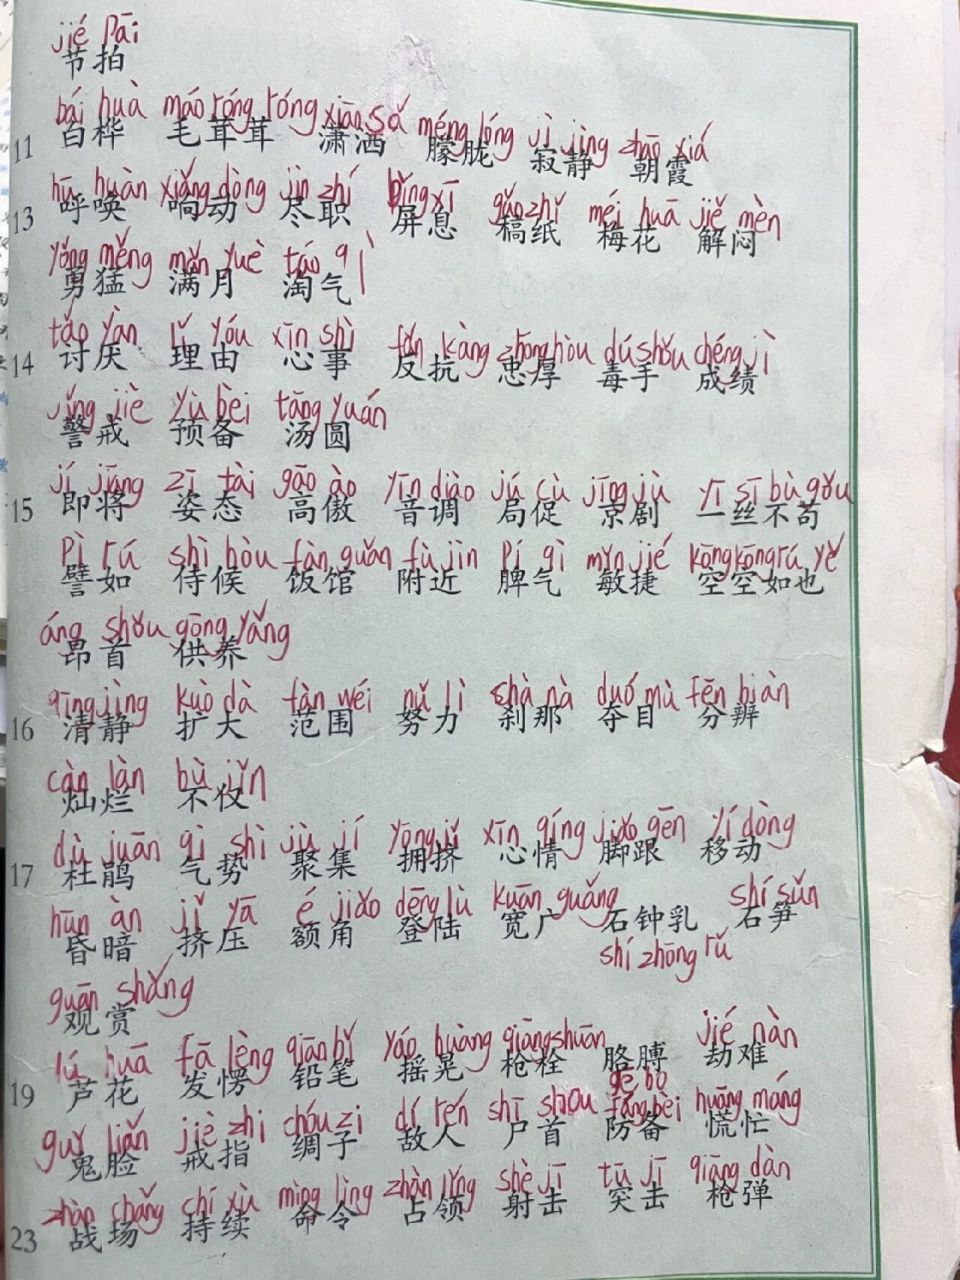 jié Pāi
节拍
bái huà máo róng róng xiāo sǎ méng lóng jì jìng zhāo xiá
11 白桦 毛茸茸 潇洒 朦胧 寂静 朝霞
hū huàn xiǎng dòng jìn zhí bǐng xī gǎo zhǐ méi huā jiě mèn
13 呼唤 响动 尽职 屏息 稿纸 梅花 解闷
yǒng měng mǎn yuè táo qì
勇猛 满月 淘气
tǎo yàn lǐ yóu xīn shì fǎn kàng zhōng hòu dú shǒu chéng jì
14 讨厌 理由 心事 反抗 忠厚 毒手 成绩
jǐng jiè yù bèi tāng yuán
警戒 预备 汤圆
jí jiāng zī tài gāo ào yīn diào jú cù jīng jù yī sī bù gǒu
15 即将 姿态 高傲 音调 局促 京剧 一丝不苟
Pì rú shì hòu fàn guǎn fù jìn Pí qì mǐn jié kōng kōng rú yě
譬如 侍候 饭馆 附近 脾气 敏捷 空空如也
áng shǒu gōng yǎng
昂首 供养
qīng jìng kuò dà fàn wéi nǔ lì shà nà duó mù fēn biàn
16 清静 扩大 范围 努力 刹那 夺目 分辨
càn làn bù jǐn
灿烂 不仅
dù juān qì shì jù jí yōng jǐ xīn qíng jiǎo gēn yí dòng
17 杜鹃 气势 聚集 拥挤 心情 脚跟 移动
hūn àn jǐ yā é jiǎo dēng lù kuān guǎng shí sǔn
昏暗 挤压 额角 登陆 宽广 石钟乳 石笋
shí zhōng rǔ
guān shǎng
观赏
lú huā fā lèng qiān bǐ yáo huàng qiāng shuān jié nàn
19 芦花 发愣 铅笔 摇晃 枪栓 胳膊 劫难
gē bo
guǐ liǎn jiè zhi chóu zi dí rén shī shou fáng bèi huāng máng
鬼脸 戒指 绸子 敌人 尸首 防备 慌忙
zhàn chǎng chí xù mìng lìng zhàn lǐng shè jī tū jī qiāng dàn
23 战场 持续 命令 占领 射击 突击 枪弹